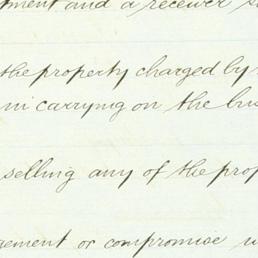 ment and a receiver s
the property charged by
in carrying on the bus
selling any of the prop
gement or compromise w